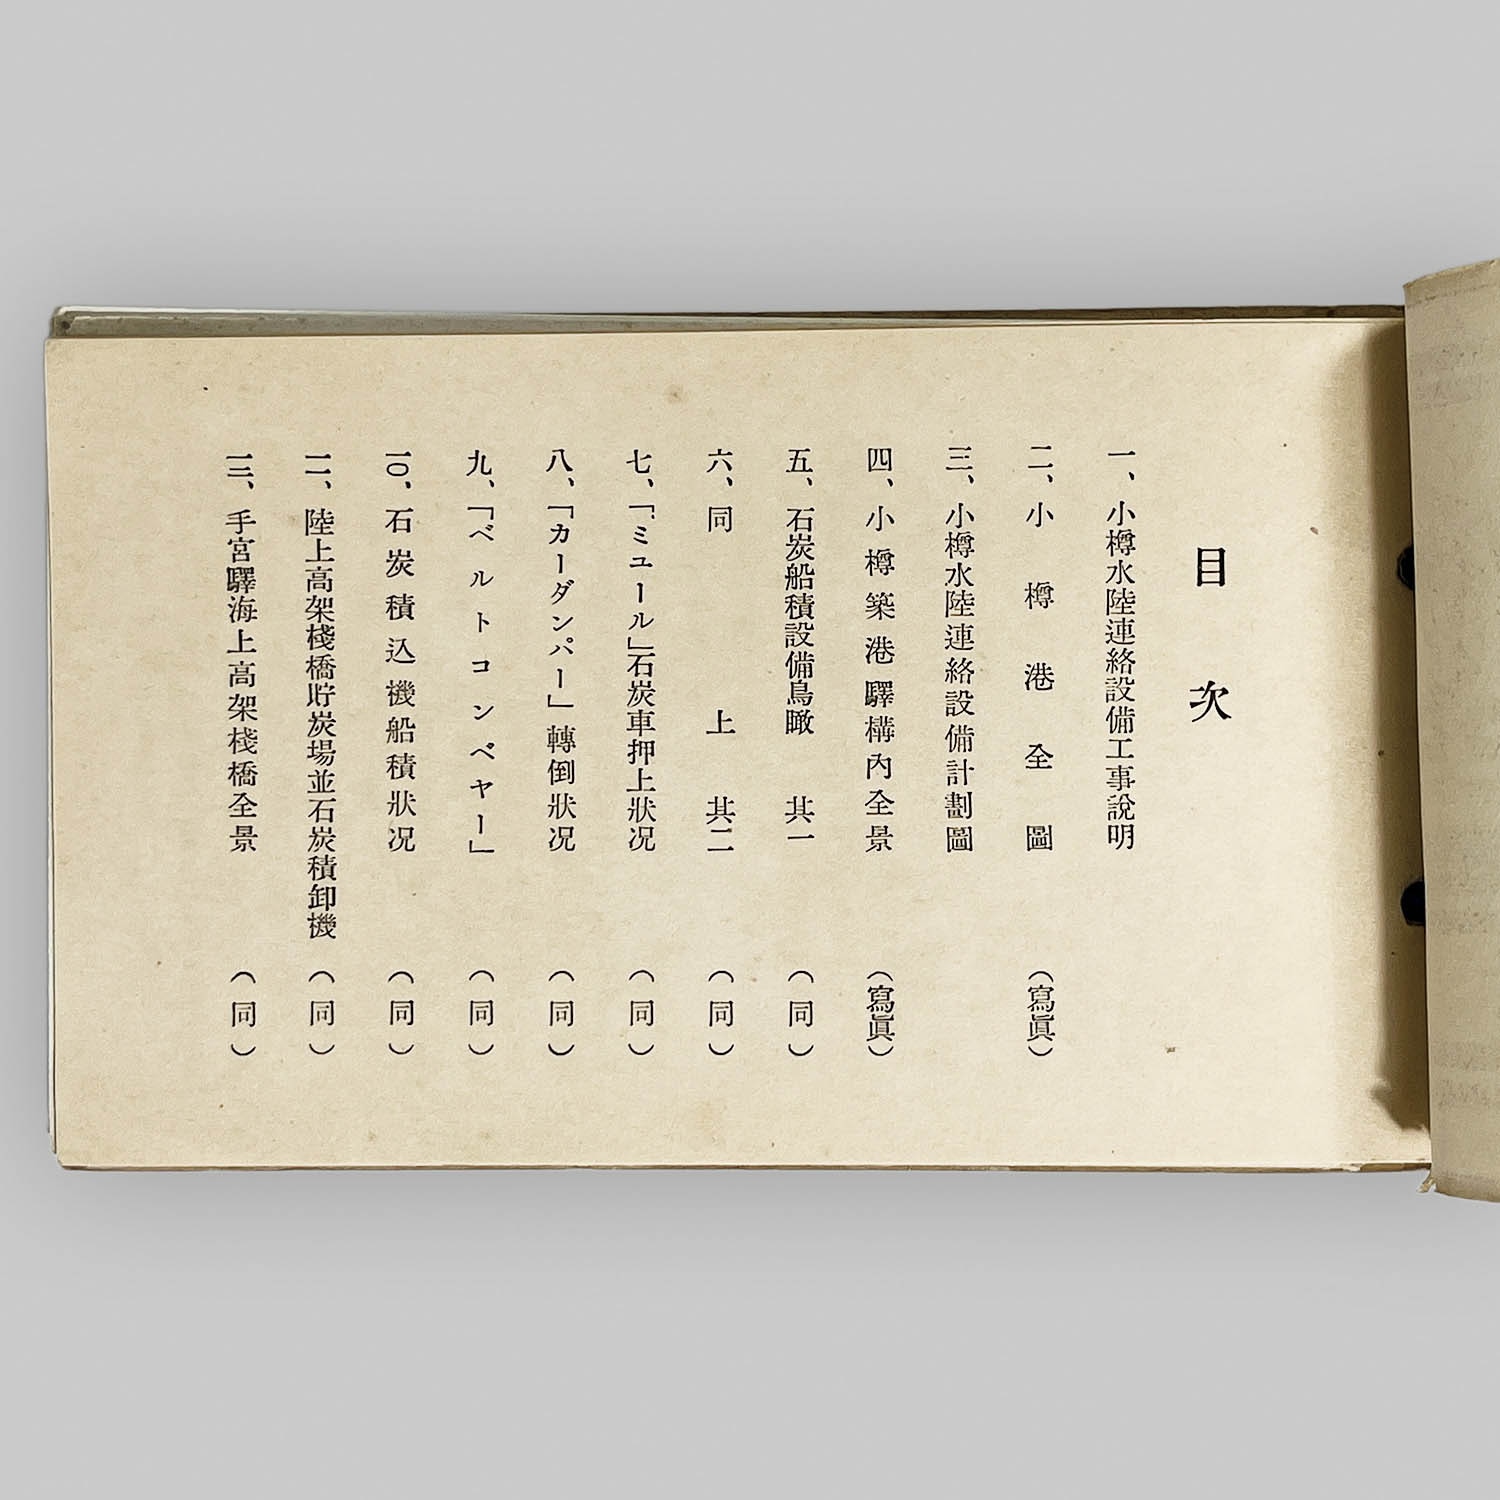 目次
一、小樽水陸連絡設備工事說明
二、小樽港全圖（寫眞）
三、小樽水陸連絡設備計劃圖
四、小樽築港驛構內全景（寫眞）
五、石炭船積設備鳥瞰 其一（同）
六、同上 其二（同）
七、「ミユール」石炭車押上狀況（同）
八、「カーダンパー」轉倒狀況（同）
九、「ベルトコンベヤー」（同）
一〇、石炭積込機船積狀況（同）
一一、陸上高架棧橋貯炭場並石炭積卸機（同）
一二、手宮驛海上高架棧橋全景（同）